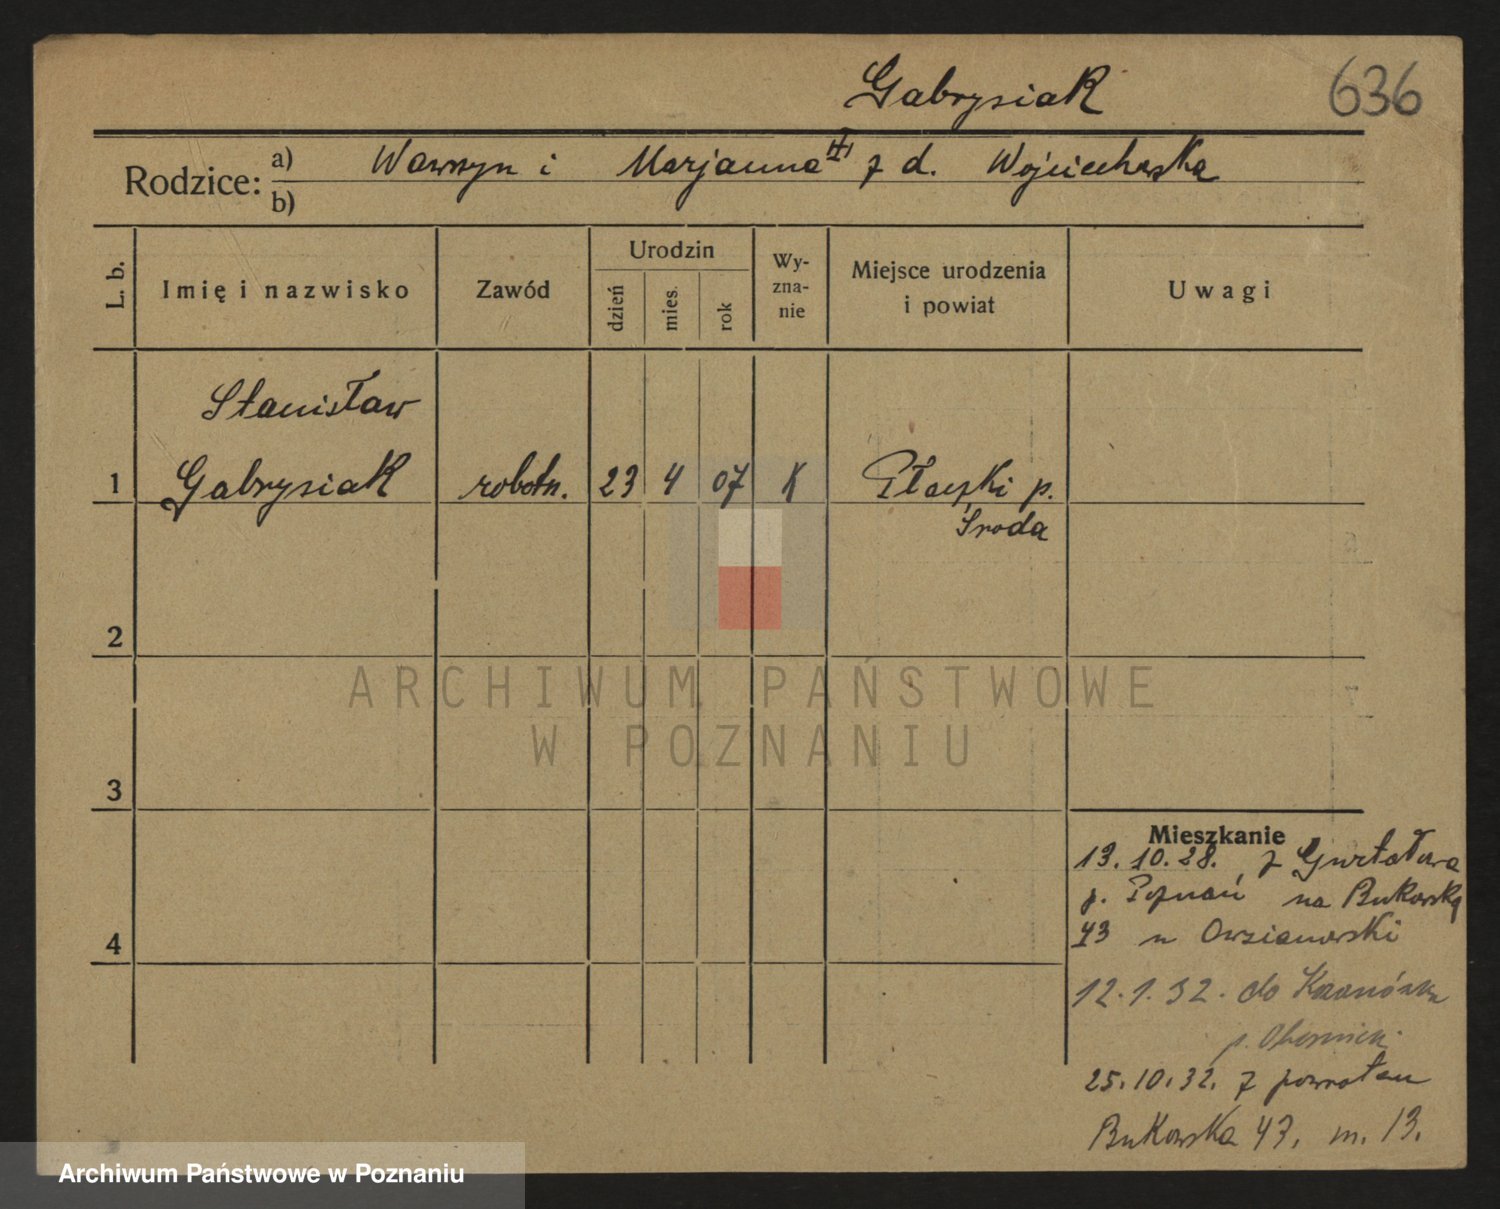 Gabrysiak
636
Rodzice: a) Wawrzyn i Marjanna z d. Wojciechowska
b)
L. b.
Imię i nazwisko
Zawód
Urodzin
dzień
mies.
rok
Wy-
zna-
nie
Miejsce urodzenia
i powiat
Uwagi
Stanisław
1 Gabrysiak robotn. 23 4 07 K Płaczki p.
Środa
2
ARCHIWUM PAŃSTWOWE
W POZNANIU
3
Mieszkanie
13.10.28. z
p. Poznań na Bukowską
43 u
4
12.1.32. do
p. Oborniki
25.10.32. z powrotem
Bukowska 43. m. 13.
Archiwum Państwowe w Poznaniu